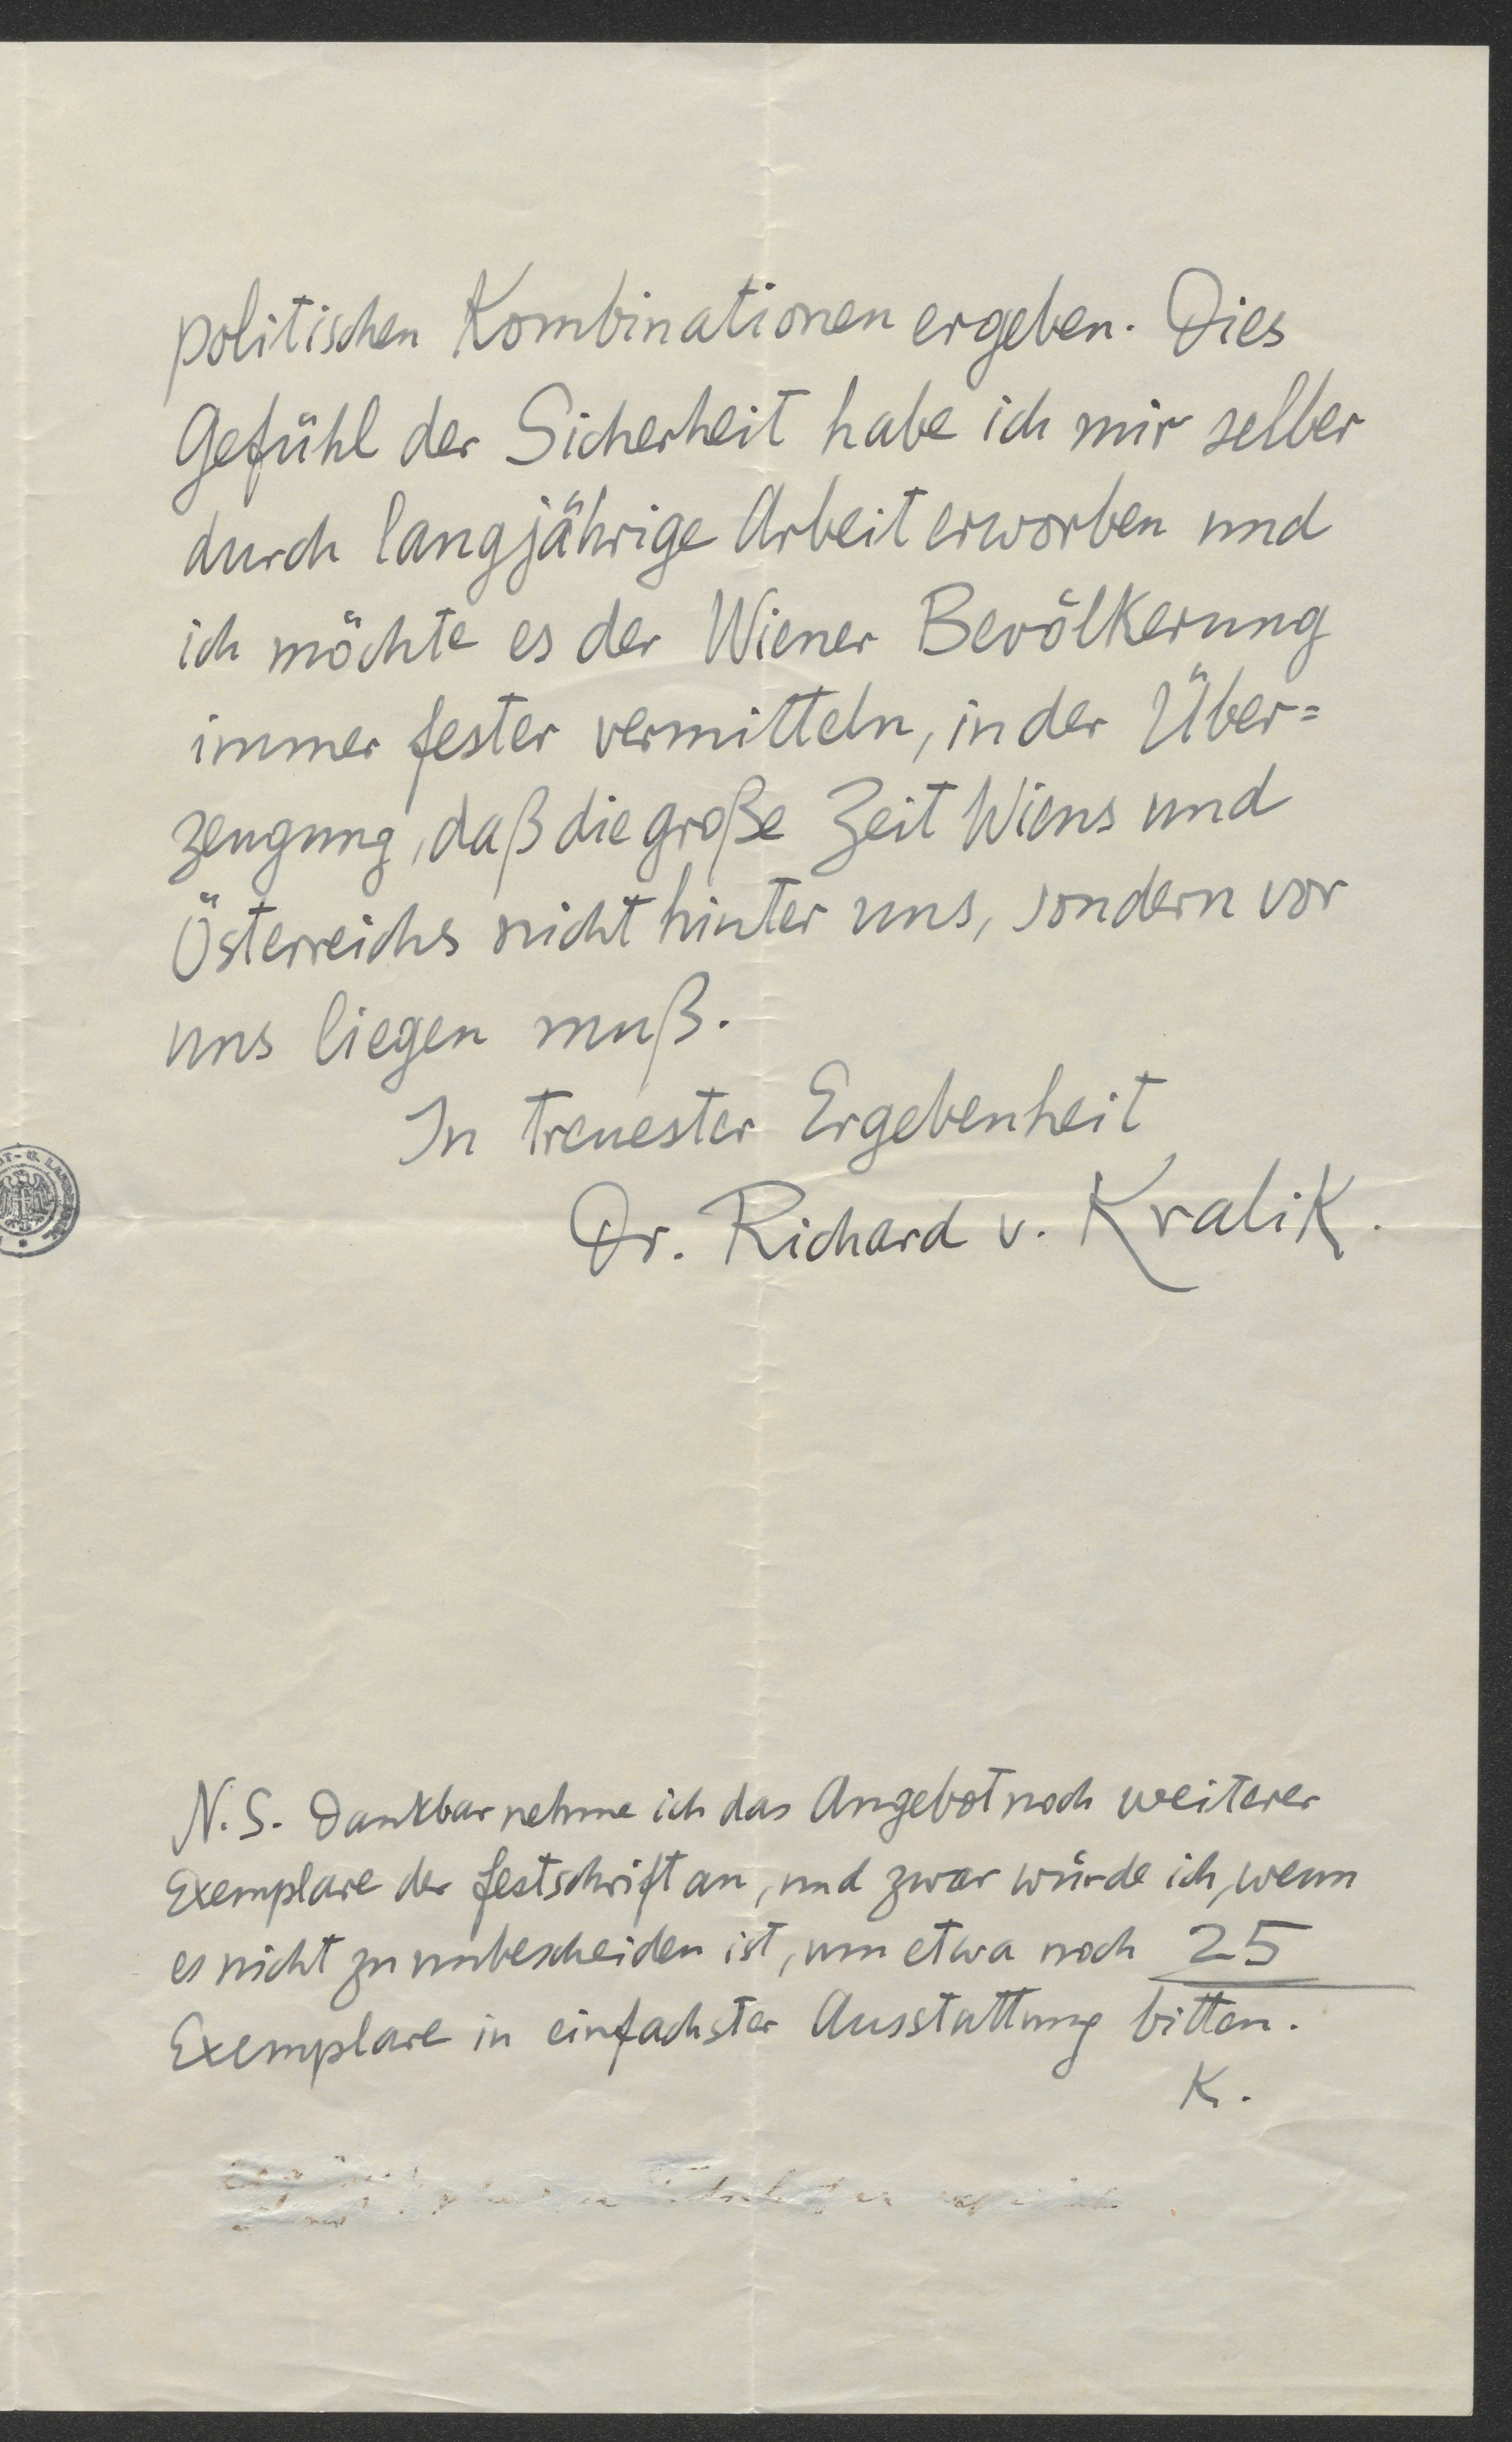 politischen Kombinationen ergeben. Dies
Gefühl der Sicherheit habe ich mir selber
durch langjährige Arbeit erworben und
ich möchte es der Wiener Bevölkerung
immer fester vermitteln, in der Über=
zeugung, daß die große Zeit Wiens und
Österreichs nicht hinter uns, sondern vor
uns liegen muß.
In treuester Ergebenheit
Dr. Richard v. Kralik.
N.S. Dankbar nehme ich das Angebot noch weiterer
Exemplare der Festschrift an, und zwar würde ich, wenn
es nicht zu unbescheiden ist, um etwa noch 25
Exemplare in einfachster Ausstattung bitten.
K.